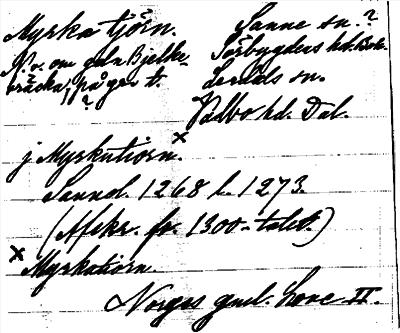 Myrka tjörn.
N.v. om gdn Bjelke-
bräcka, på ger t.
?
Sanne sn.?
Sörbygdens hd. Boh.
Lerdals sn.
Valbo hd. Dal.
j Myrkutiorn. x
Sannol. 1268 l. 1273.
(Afskr. fr. 1300-talet.)
x Myrkatiorn.
Norges gml. Love II.